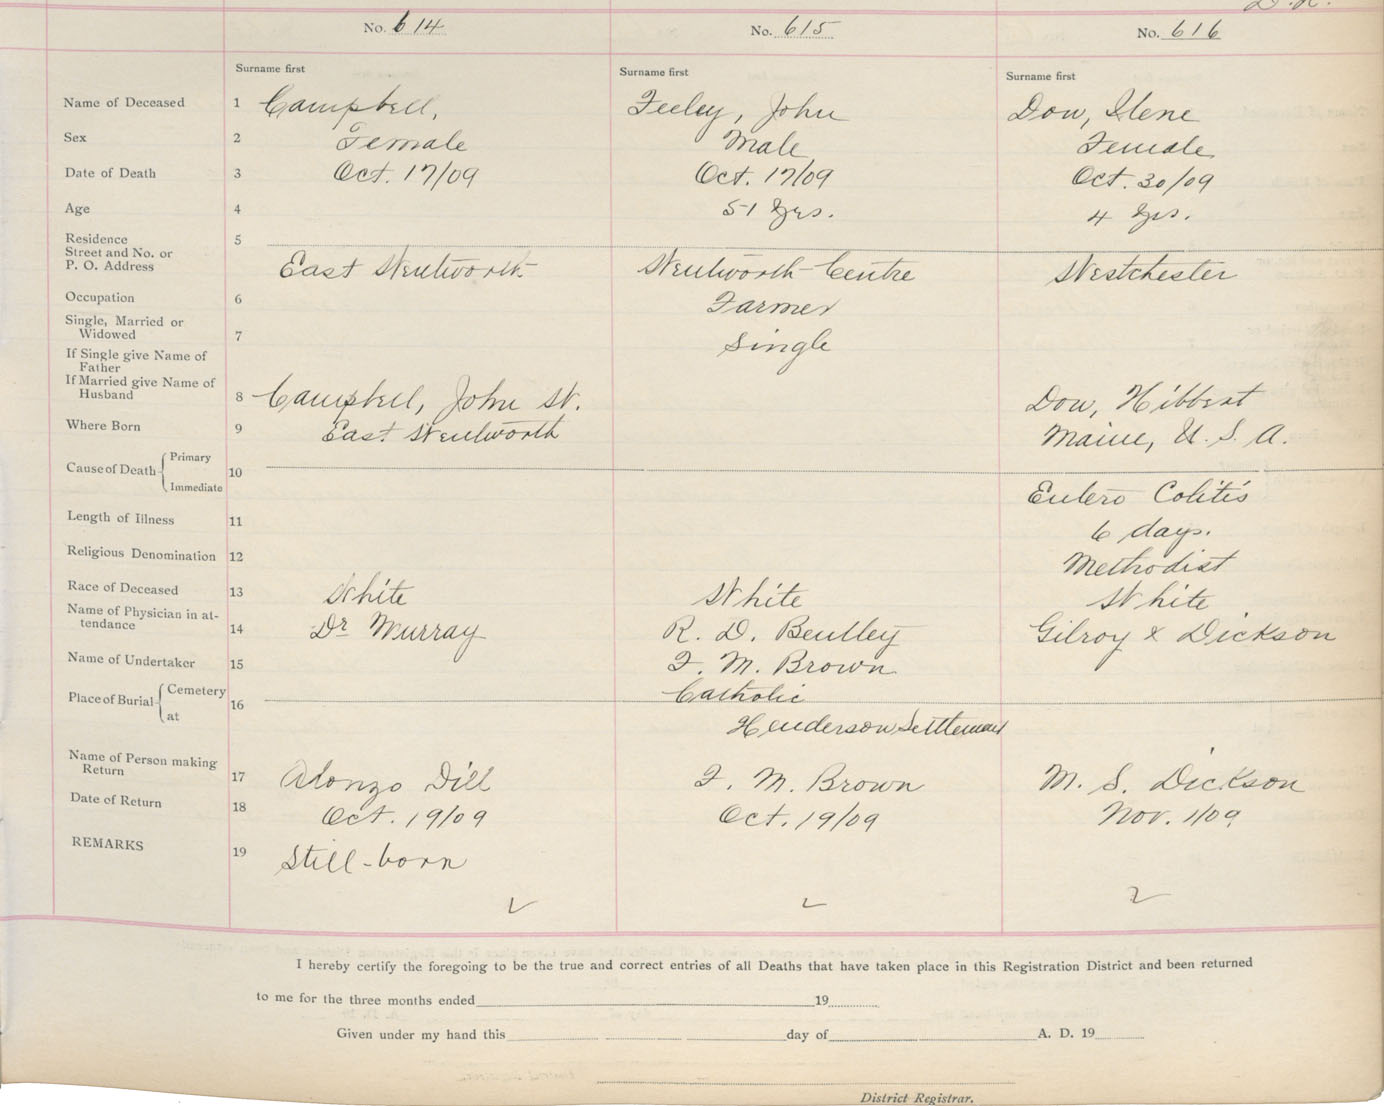 No. 614 No. 615 No. 616
Surname first Surname first Surname first
Name of Deceased 1 Campbell, Feeley, John Dow, Ilene
Sex 2 Female Male Female
Date of Death 3 Oct. 17/09 Oct. 17/09 Oct. 30/09
Age 4 51 yrs. 4 yrs.
Residence 5
Street and No. or
P. O. Address East Wentworth Wentworth Centre Westchester
Occupation 6 Farmer
Single, Married or
Widowed 7 Single
If Single give Name of
Father
If Married give Name of
Husband 8 Campbell, John W. Dow, Hibbert
Where Born 9 East Wentworth Maine, U. S. A.
Cause of Death Primary 10
Immediate Entero Colitis
Length of Illness 11 6 days.
Religious Denomination 12 Methodist
Race of Deceased 13 White White White
Name of Physician in at-
tendance 14 Dr Murray R. D. Bentley Gilroy & Dickson
Name of Undertaker 15 F. M. Brown
Place of Burial Cemetery 16 Catholic
at Henderson Settlement
Name of Person making
Return 17 Alonzo Dill F. M. Brown M. S. Dickson
Date of Return 18 Oct. 19/09 Oct. 19/09 Nov. 1/09
REMARKS 19 Still-born
I hereby certify the foregoing to be the true and correct entries of all Deaths that have taken place in this Registration District and been returned
to me for the three months ended 19
Given under my hand this day of A. D. 19
District Registrar.